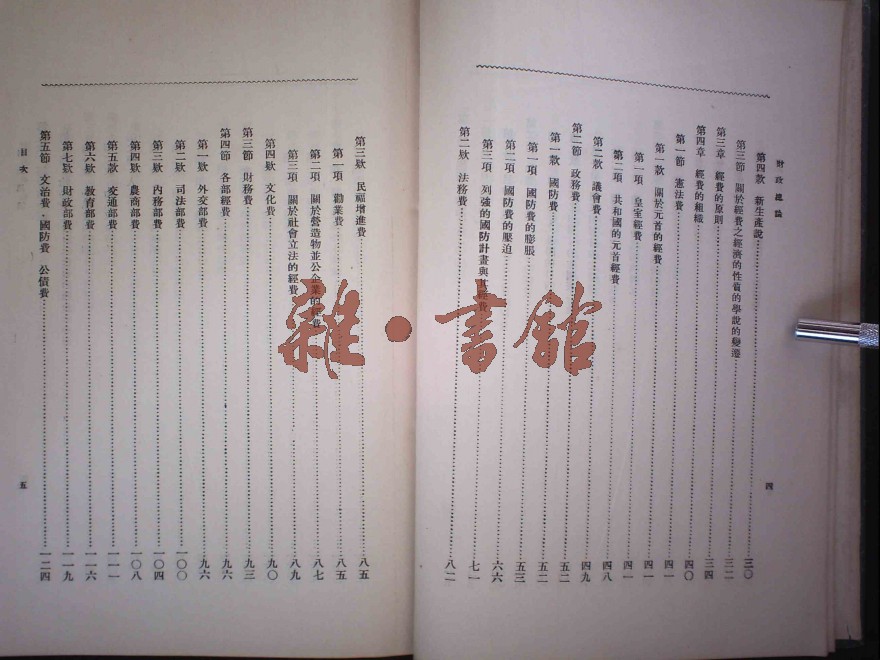 財政總論
第四款 新生產說……三〇
第三節 關於經費之經濟的性質的學說的變遷……三二
第三章 經費的原則……三四
第四章 經費的組織……四〇
第一節 憲法費……四一
第一款 關於元首的經費……四一
第一項 皇室經費……四一
第二項 共和國的元首經費……四八
第二款 議會費……四九
第二節 政務費……五二
第一款 國防費……五二
第一項 國防費的膨脹……五三
第二項 國防費的壓迫……六六
第三項 列強的國防計畫與其經費……七一
第二款 法務費……八二
四
第三款 民福增進費……八五
第一項 勸業費……八五
第二項 關於營造物並公企業的經費……八七
第三項 關於社會立法的經費……八九
第四款 文化費……九〇
第三節 財務費……九三
第四節 各部經費……九六
第一款 外交部費……九六
第二款 司法部費……一〇〇
第三款 內務部費……一〇四
第四款 農商部費……一〇八
第五款 交通部費……一一一
第六款 教育部費……一一六
第七款 財政部費……一一九
第五節 文治費・國防費 公債費……一二四
目次
五
雜・書館